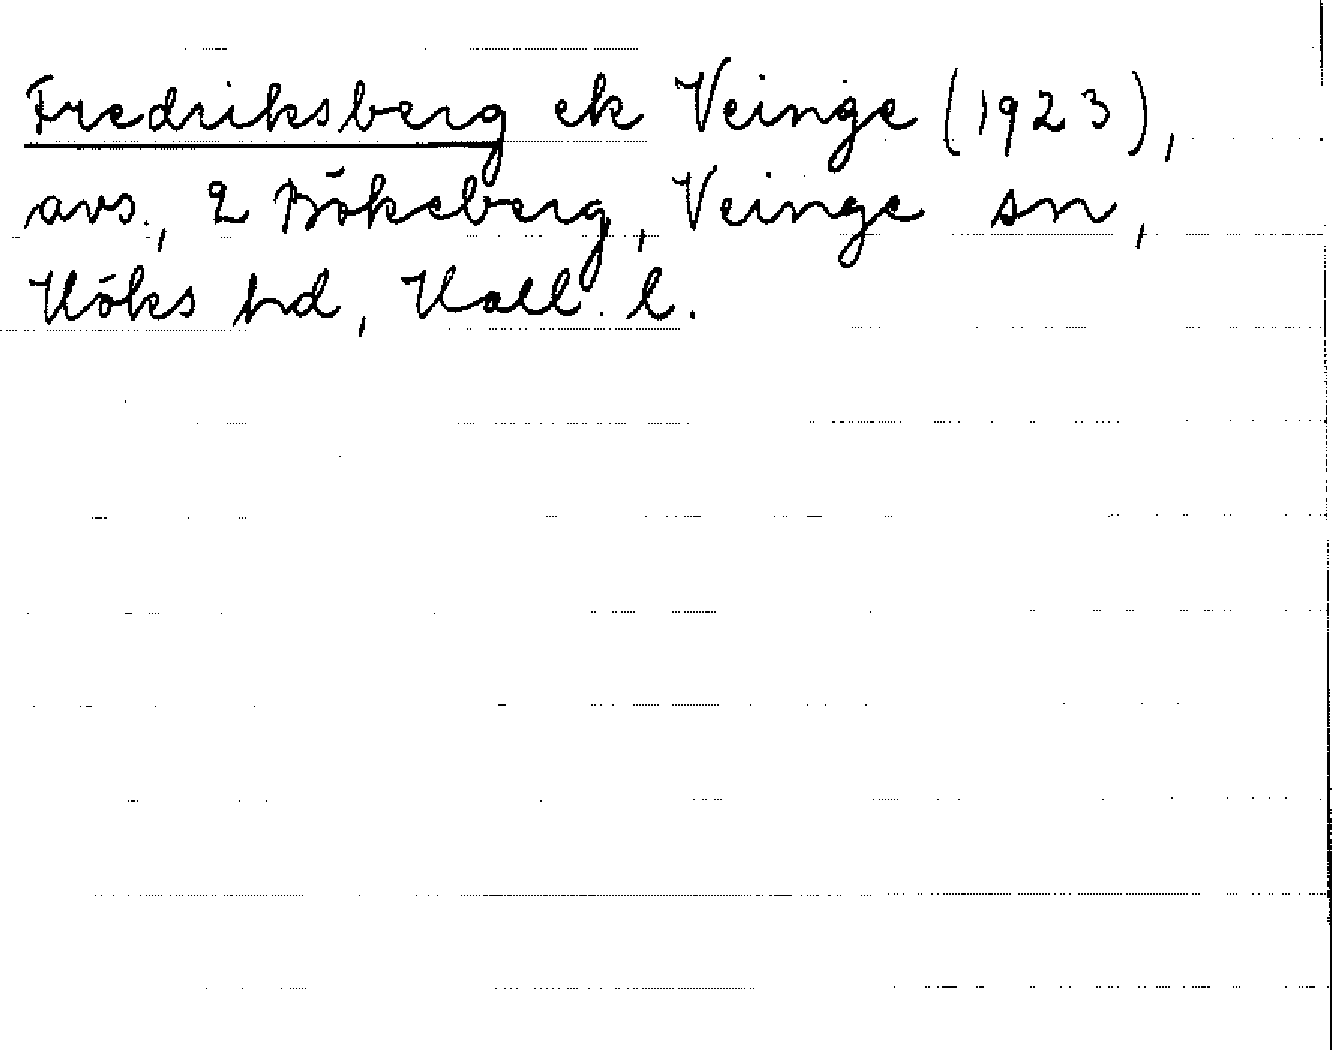 Fredriksberg ek Veinge (1923),
avs., 2 Bökeberg, Veinge sn,
Höks hd, Hall. l.